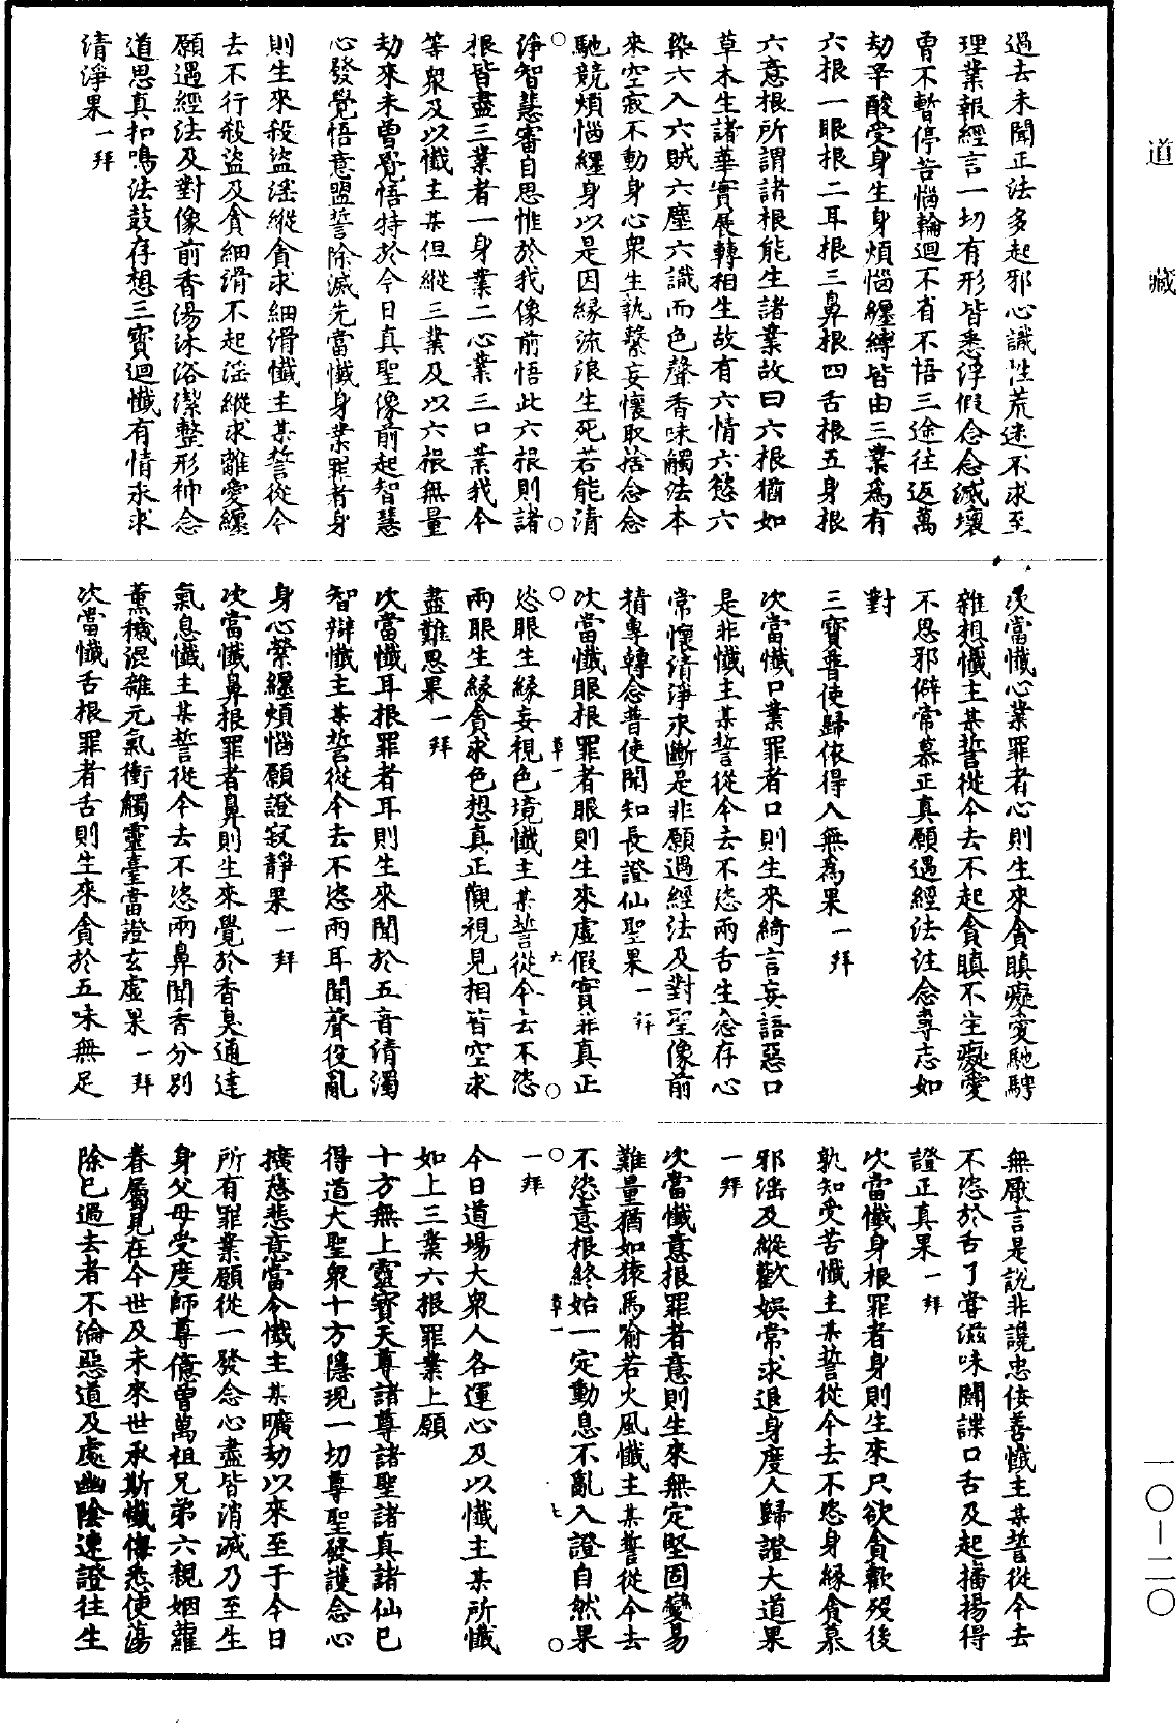 道藏
過去未聞正法多起邪心識性荒迷不求至
理業報經言一切有形皆悉浮假念念滅壞
曾不暫停苦惱輪迴不省不悟三途往返萬
劫辛酸受身生身煩惱纏縛皆由三業為有
六根一眼根二耳根三鼻根四舌根五身根
六意根所謂諸根能生諸業故曰六根猶如
草木生諸華實展轉相生故有六情六慾六
染六入六賊六塵六識而色聲香味觸法本
來空寂不動身心衆生執繫妄懷取捨念念
馳競煩惱纏身以是因緣流浪生死若能清
淨智慧審自思惟於我像前悟此六根則諸
根皆盡三業者一身業二心業三口業我今
等衆及以懺主某但縱三業及以六根無量
劫來未曾覺悟特於今日真聖像前起智慧
心發覺悟意盟誓除滅先當懺身業罪者身
則生來殺盜滛縱貪求細滑懺主某誓從今
去不行殺盜及貪細滑不起滛縱求離愛纏
願遇經法及對像前香湯沐浴潔整形神念
道思真扣鳴法鼓存想三寶迴懺有情永求
清淨果一拜
次當懺心業罪者心則生來貪瞋癡愛馳騁
雜想懺主某誓從今去不起貪瞋不生癡愛
不思邪僻常慕正真願遇經法注念專志如
對
三寶普使歸依得入無為果一拜
次當懺口業罪者口則生來綺言妄語惡口
是非懺主某誓從今去不恣兩舌生念存心
常懷清淨永斷是非願遇經法及對聖像前
精專轉念普使聞知長證仙聖果一拜
次當懺眼根罪者眼則生來虛假實非真正
草一 六
恣眼生緣妄視色境懺主某誓從今去不恣
兩眼生緣貪求色想真正觀視見相皆空求
盡難思果一拜
次當懺耳根罪者耳則生來聞於五音清濁
智辯懺主某誓從今去不恣兩耳聞聲役亂
身心縈纏煩惱願證寂靜果一拜
次當懺鼻根罪者鼻則生來覺於香臭通達
氣息懺主某誓從今去不恣兩鼻聞香分別
薰穢混雜元氣衝觸靈臺當證玄虛果一拜
次當懺舌根罪者舌則生來貪於五味無足
無厭言是說非讒忠佞善懺主某誓從今去
不恣於舌了嘗滋味鬪諜口舌及起播揚得
證正真果一拜
次當懺身根罪者身則生來只欲貪歡歿後
孰知受苦懺主某誓從今去不恣身緣貪慕
邪滛及縱歡娛常求退身度人歸證大道果
一拜
次當懺意根罪者意則生來無定堅固變易
難量猶如猿馬喻若火風懺主某誓從今去
不恣意根終始一定動息不亂入證自然果
草一 七
一拜
今日道場大衆人各運心及以懺主某所懺
如上三業六根罪業上願
十方無上靈寶天尊諸尊諸聖諸真諸仙已
得道大聖衆十方隱現一切尊聖發護念心
擴慈悲意當今懺主某曠劫以來至于今日
所有罪業願從一發念心盡皆消滅乃至生
身父母受度師尊億曾萬祖兄弟六親姻蘿
眷屬見在今世及未來世承斯懺悔悉使蕩
除已過去者不淪惡道及處幽陰速證往生
一〇—二〇